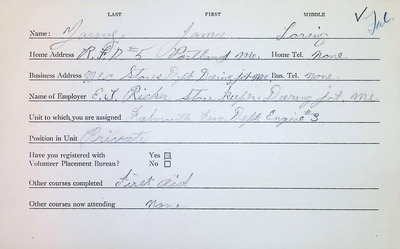 LAST FIRST MIDDLE
Name: James Loring
Home Address R.F.D #5 Portland Me. Home Tel. None.
Business Address M.C.R Stores Dept Deering Jct Me Bus. Tel. None.
Name of Employer E. L. Ricker Store Keeper Deering Jct. Me
Unit to which you are assigned Falmouth Fire Dept Engine #3
Position in Unit Private
Have you registered with Yes
Volunteer Placement Bureau? No
Other courses completed First aid
Other courses now attending None.